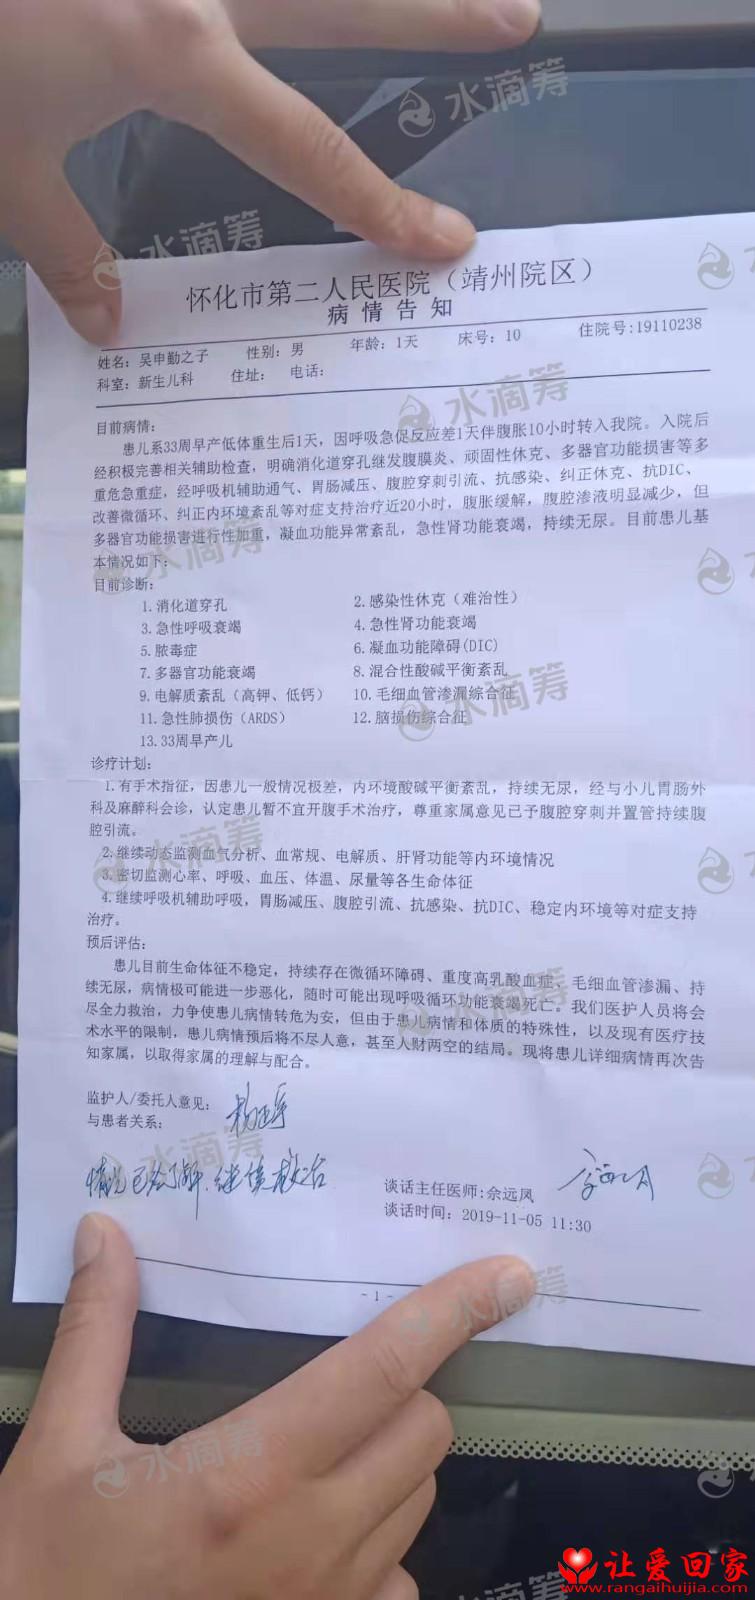 怀化市第二人民医院（靖州院区）
病情告知
姓名：吴申勤之子 性别：男 年龄：1天 床号：10 住院号：19110238
科室：新生儿科 住址： 电话：
目前病情：
患儿系33周早产低体重生后1天，因呼吸急促反应差1天伴腹胀10小时转入我院。入院后
经积极完善相关辅助检查，明确消化道穿孔继发腹膜炎、顽固性休克、多器官功能损害等多
重危急重症，经呼吸机辅助通气、胃肠减压、腹腔穿刺引流、抗感染、纠正休克、抗DIC、
改善微循环、纠正内环境紊乱等对症支持治疗近20小时，腹胀缓解，腹腔渗液明显减少，但
多器官功能损害进行性加重，凝血功能异常紊乱，急性肾功能衰竭，持续无尿。目前患儿基
本情况如下：
目前诊断：
1.消化道穿孔 2.感染性休克（难治性）
3.急性呼吸衰竭 4.急性肾功能衰竭
5.脓毒症 6.凝血功能障碍(DIC)
7.多器官功能衰竭 8.混合性酸碱平衡紊乱
9.电解质紊乱（高钾、低钙） 10.毛细血管渗漏综合征
11.急性肺损伤（ARDS） 12.脑损伤综合征
13.33周早产儿
诊疗计划：
1.有手术指征，因患儿一般情况极差，内环境酸碱平衡紊乱，持续无尿，经与小儿胃肠外
科及麻醉科会诊，认定患儿暂不宜开腹手术治疗，尊重家属意见已予腹腔穿刺并置管持续腹
腔引流。
2.继续动态监测血气分析、血常规、电解质、肝肾功能等内环境情况
3.密切监测心率、呼吸、血压、体温、尿量等各生命体征
4.继续呼吸机辅助呼吸，胃肠减压、腹腔引流、抗感染、抗DIC、稳定内环境等对症支持
治疗。
预后评估：
患儿目前生命体征不稳定，持续存在微循环障碍、重度高乳酸血症、毛细血管渗漏、持
续无尿，病情极可能进一步恶化，随时可能出现呼吸循环功能衰竭死亡。我们医护人员将会
尽全力救治，力争使患儿病情转危为安，但由于患儿病情和体质的特殊性，以及现有医疗技
术水平的限制，患儿病情预后将不尽人意，甚至人财两空的结局。现将患儿详细病情再次告
知家属，以取得家属的理解与配合。
监护人/委托人意见：
与患者关系：
情况已知了解，继续救治
谈话主任医师：佘远凤
谈话时间：2019-11-05 11:30
- 1 -
水滴筹
让爱回家
www.rangaihuijia.com